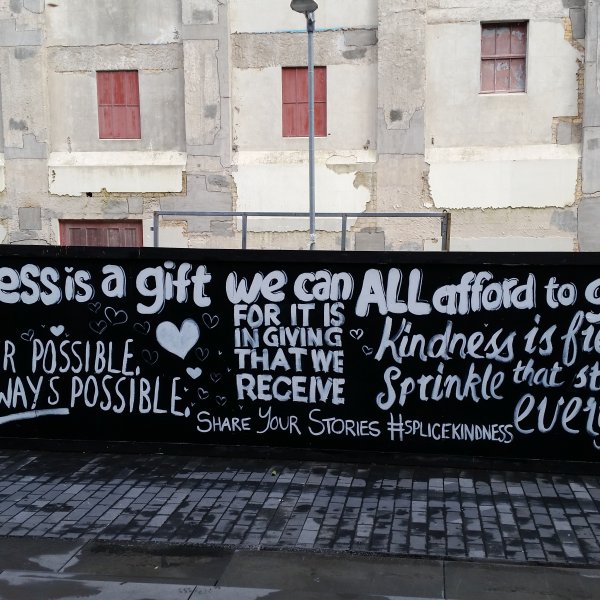 ess is a gift we can ALL afford to
FOR IT IS
IN GIVING
THAT WE
RECEIVE
R POSSIBLE.
WAYS POSSIBLE.
Kindness is
Sprinkle that
SHARE YOUR STORIES #SPLICEKINDNESS